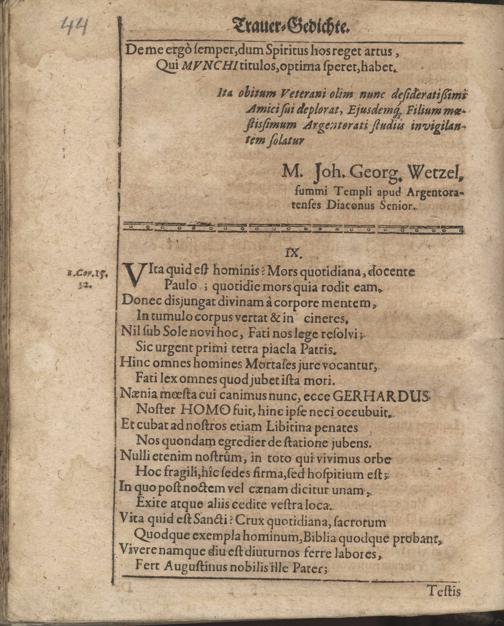 44
Trauer-Gedichte.
De me ergò semper, dum Spiritus hos reget artus,
Qui MVNCHI titulos, optima speret, habet.
Ita obitum Veterani olim nunc desideratissimi
Amici sui deplorat, Ejusdemq; Filium mœ-
stissimum Argentorati studiis invigilan-
tem solatur
M. Joh. Georg. Wetzel,
summi Templi apud Argentora-
tenses Diaconus Senior.
IX.
1. Cor. 15.
32.
VIta quid est hominis? Mors quotidiana, docente
Paulo; quotidie mors quia rodit eam.
Donec disjungat divinam à corpore mentem,
In tumulo corpus vertat & in cineres.
Nil sub Sole novi hoc, Fati nos lege resolvi;
Sic urgent primi tetra piacla Patris.
Hinc omnes homines Mortales jure vocantur,
Fati lex omnes quod jubet ista mori.
Nænia mœsta cui canimus nunc, ecce GERHARDUS
Noster HOMO fuit, hinc ipse neci occubuit.
Et cubat ad nostros etiam Libitina penates
Nos quondam egredier de statione jubens.
Nulli etenim nostrûm, in toto qui vivimus orbe
Hoc fragili, hic sedes firma, sed hospitium est;
In quo post noctem vel cænam dicitur unam,
Exite atque aliis cedite vestra loca.
Vita quid est Sancti? Crux quotidiana, sacrorum
Quodque exempla hominum, Biblia quodque probant,
Vivere namque diu est diuturnos ferre labores,
Fert Augustinus nobilis ille Pater;
Testis